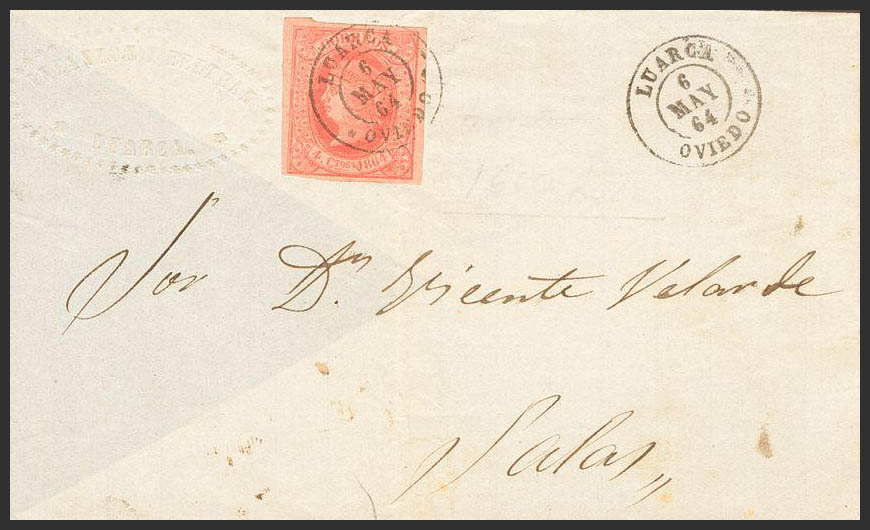 LUARCA
6
MAY
64
OVIEDO
4 CTOS 1864
LUARCA
6
MAY
64
OVIEDO
1600
Sor Dn Vicente Velarde
Salas